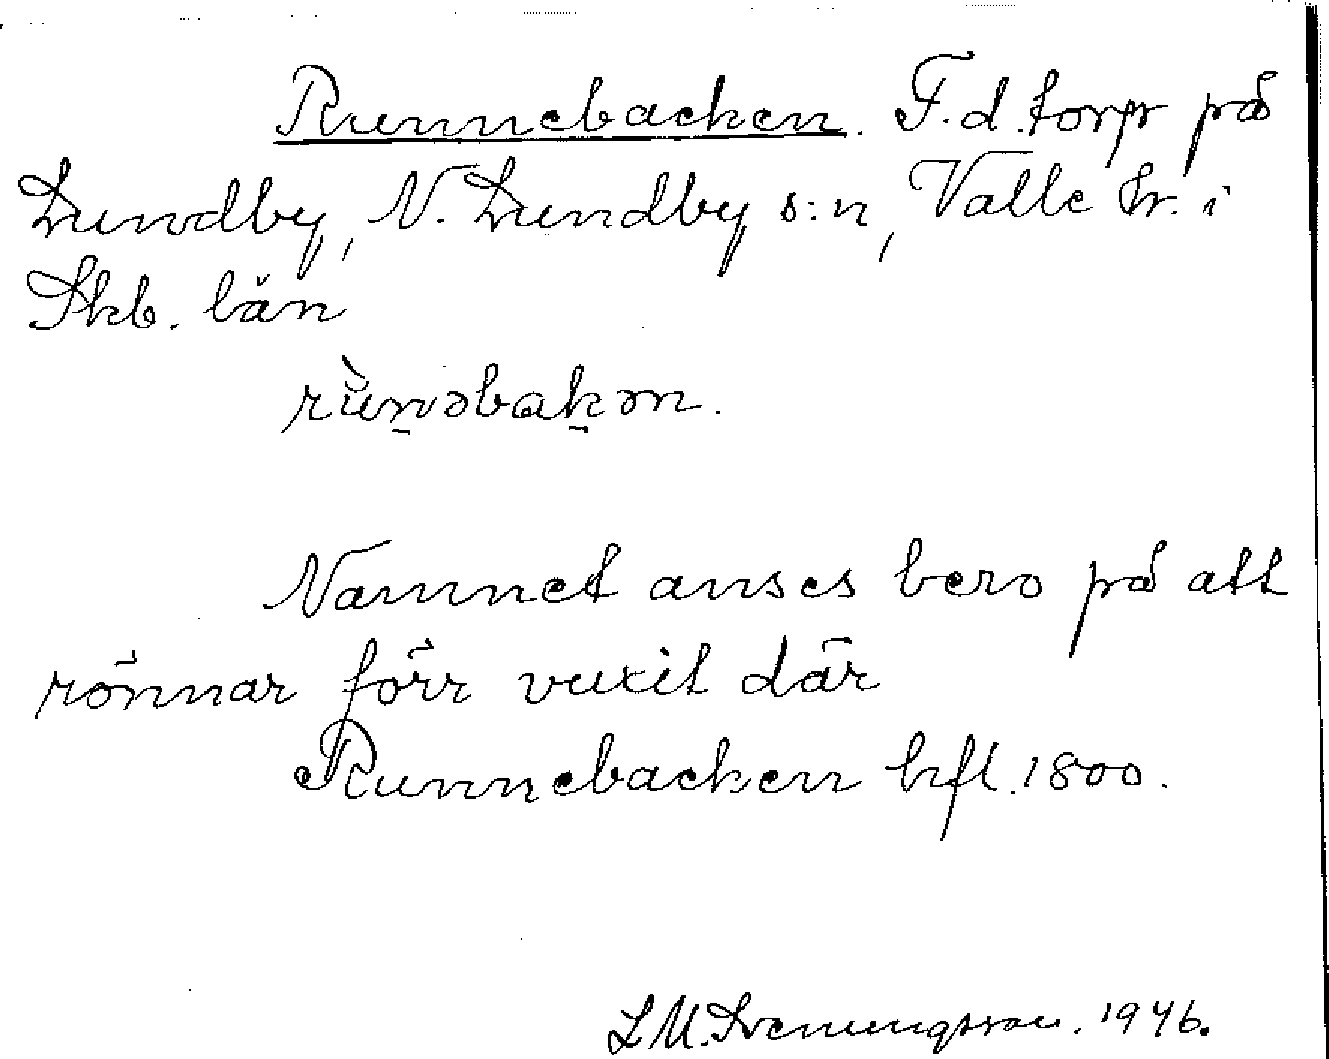 Runnebacken. F.d. torp på
Lundby, N. Lundby s:n, Valle hr. i
Skb. län
rùn̠əbak̠ən.
Namnet anses bero på att
rönnar förr vuxit där
Runnebacken hfl. 1800.
L M. Svenungsson. 1946.